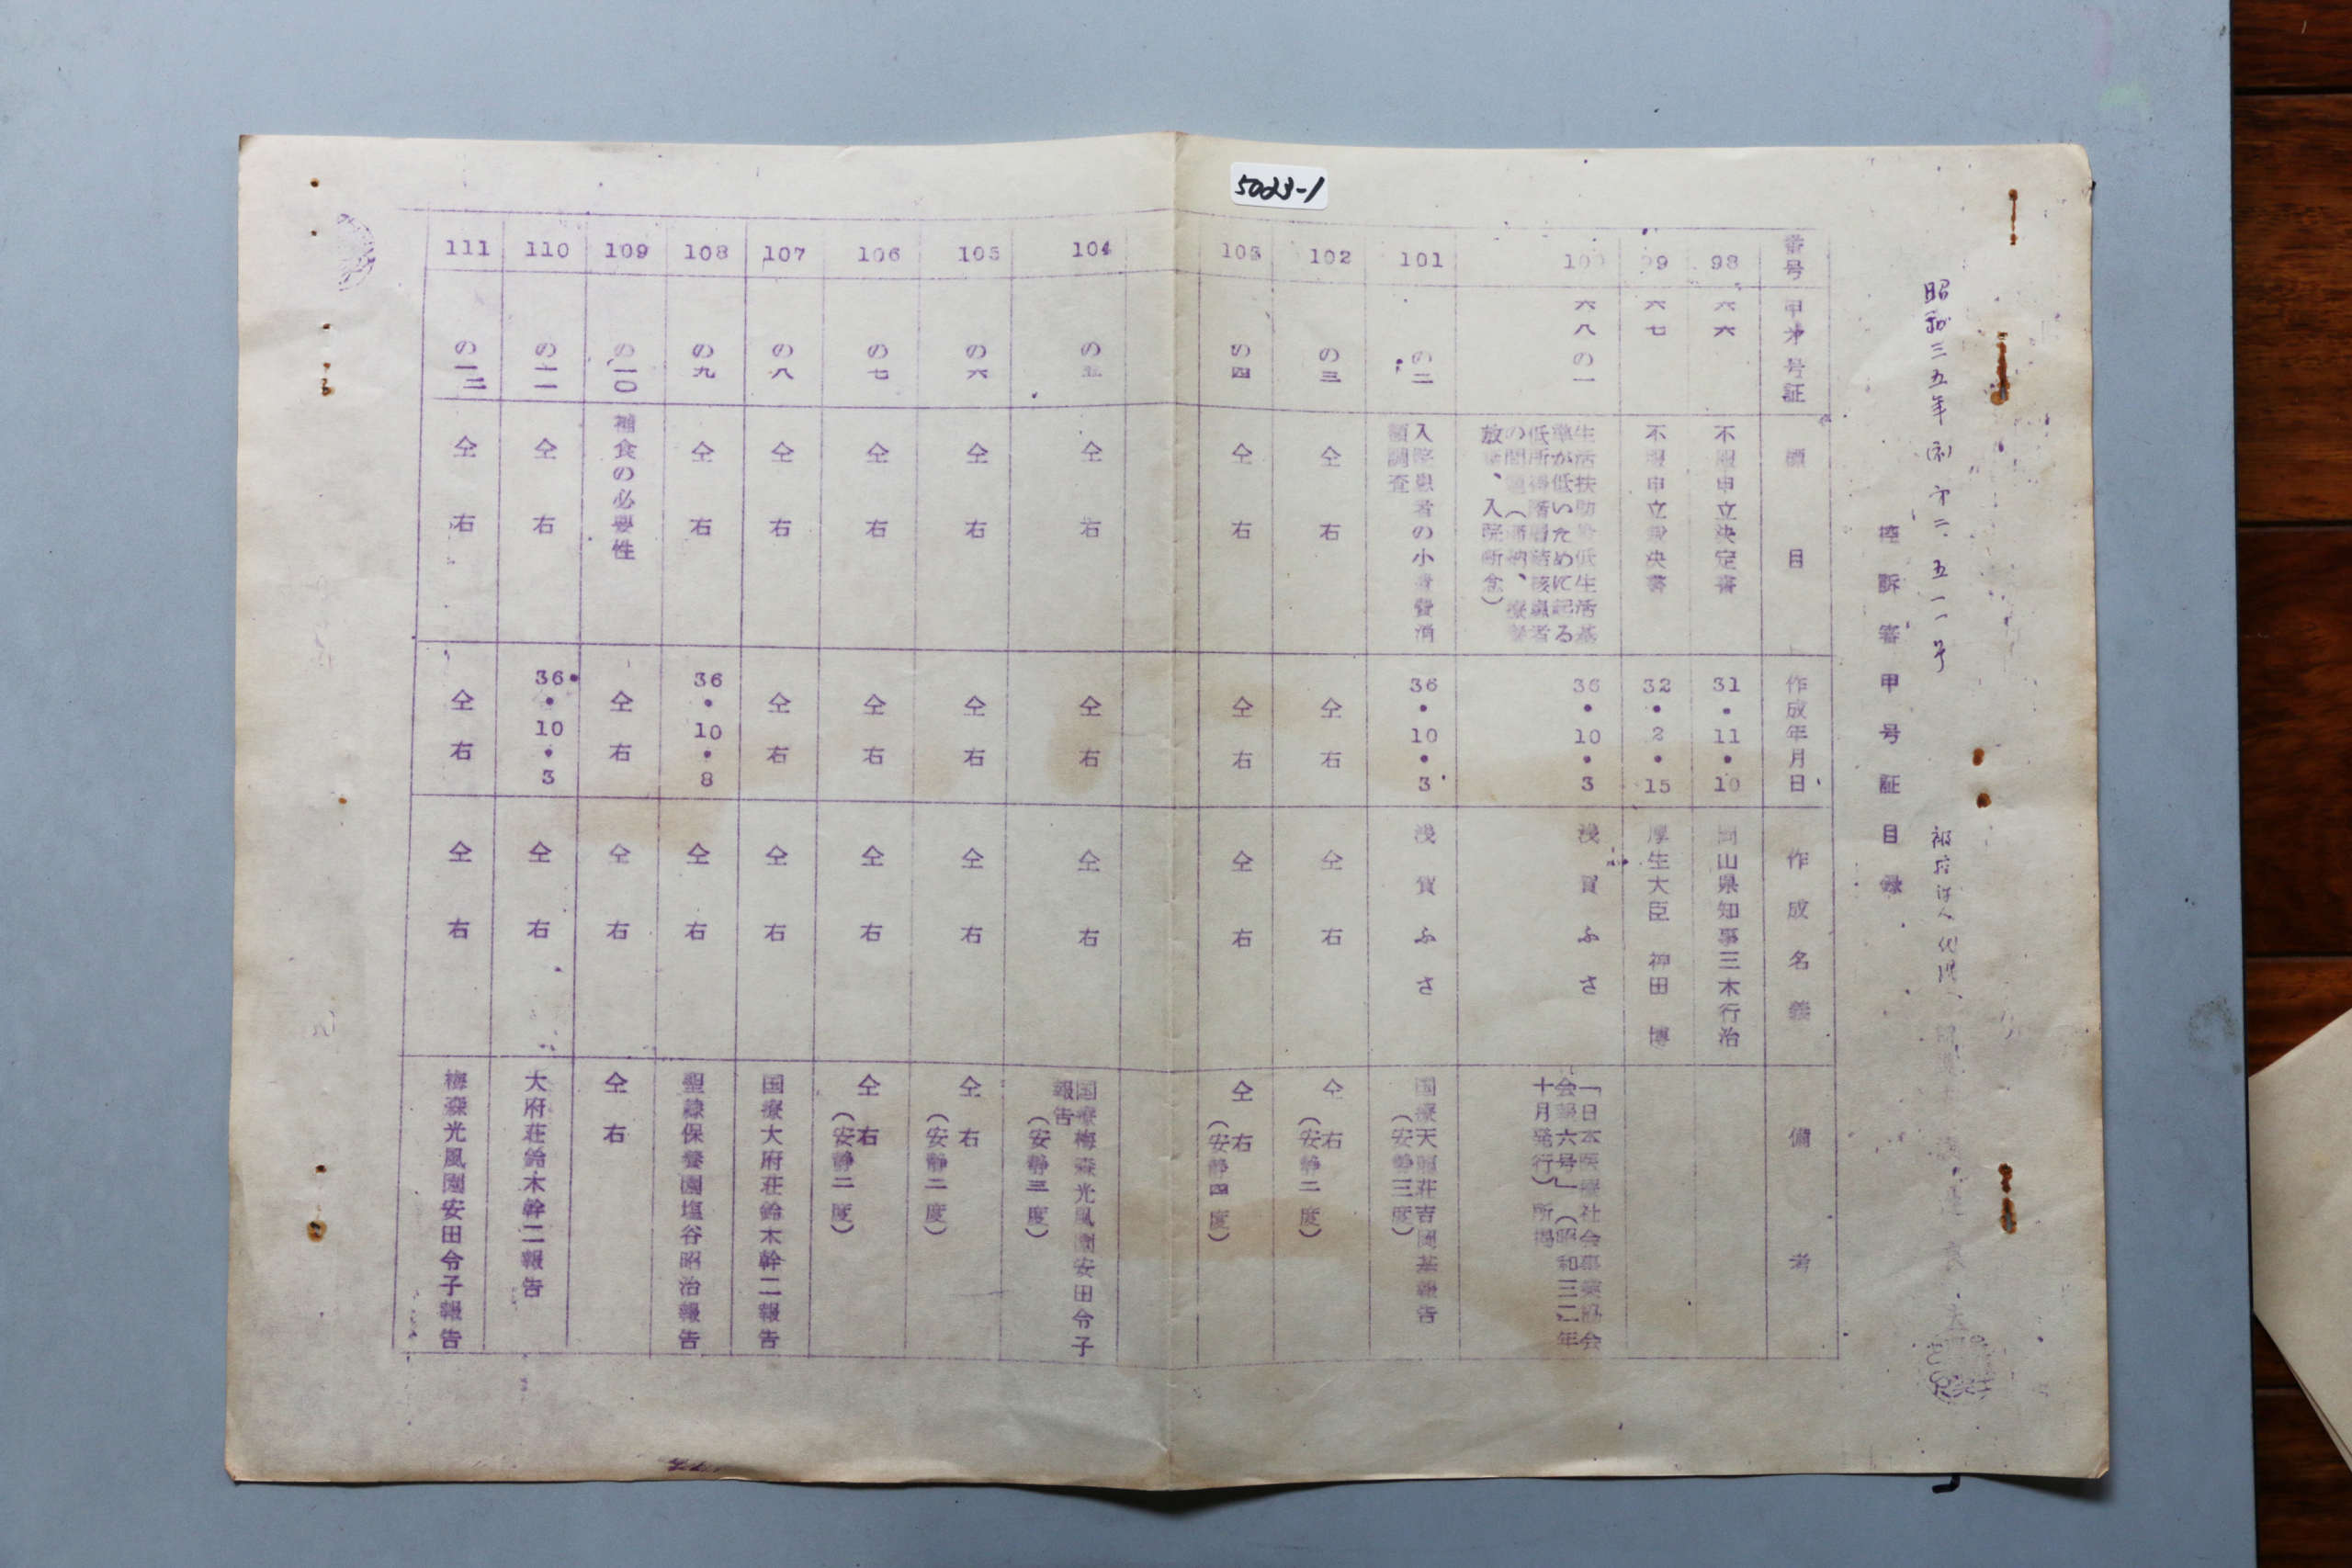 5023-1
昭和三五年(ネ)第二、五一一号
控訴審甲号証目録
番号 甲第号証 標目 作成年月日 作成名義 備考
98 六六 不服申立決定書 31・11・10 岡山県知事三木行治
99 六七 不服申立裁決書 32・2・15 厚生大臣 神田博
100 六八の一
生活扶助が低生活基
準が低いために起る
低所得階層結核患者
の問題(滞納、療養
放棄、入院断念)
36・10・3 浅賀ふさ
「日本医療社会事業協会
会誌六号」(昭和三二年
十月発行)所掲
101 の二
入院患者の小遣費消
額調査
36・10・3 浅賀ふさ
国療天竜荘吉岡基報告
(安静三度)
102 の三 仝右 仝右 仝右 仝右
(安静二度)
103 の四 仝右 仝右 仝右 仝右
(安静四度)
104 の五 仝右 仝右 仝右
国療梅森光風園安田令子
報告
(安静三度)
105 の六 仝右 仝右 仝右 仝右
(安静二度)
106 の七 仝右 仝右 仝右 仝右
(安静二度)
107 の八 仝右 仝右 仝右 国療大府荘鈴木幹二報告
108 の九 仝右 36・10・8 仝右 聖隷保養園塩谷昭治報告
109 の一〇 補食の必要性 仝右 仝右 仝右
110 の一一 仝右 36・10・3 仝右 大府荘鈴木幹二報告
111 の一二 仝右 仝右 仝右 梅森光風園安田令子報告